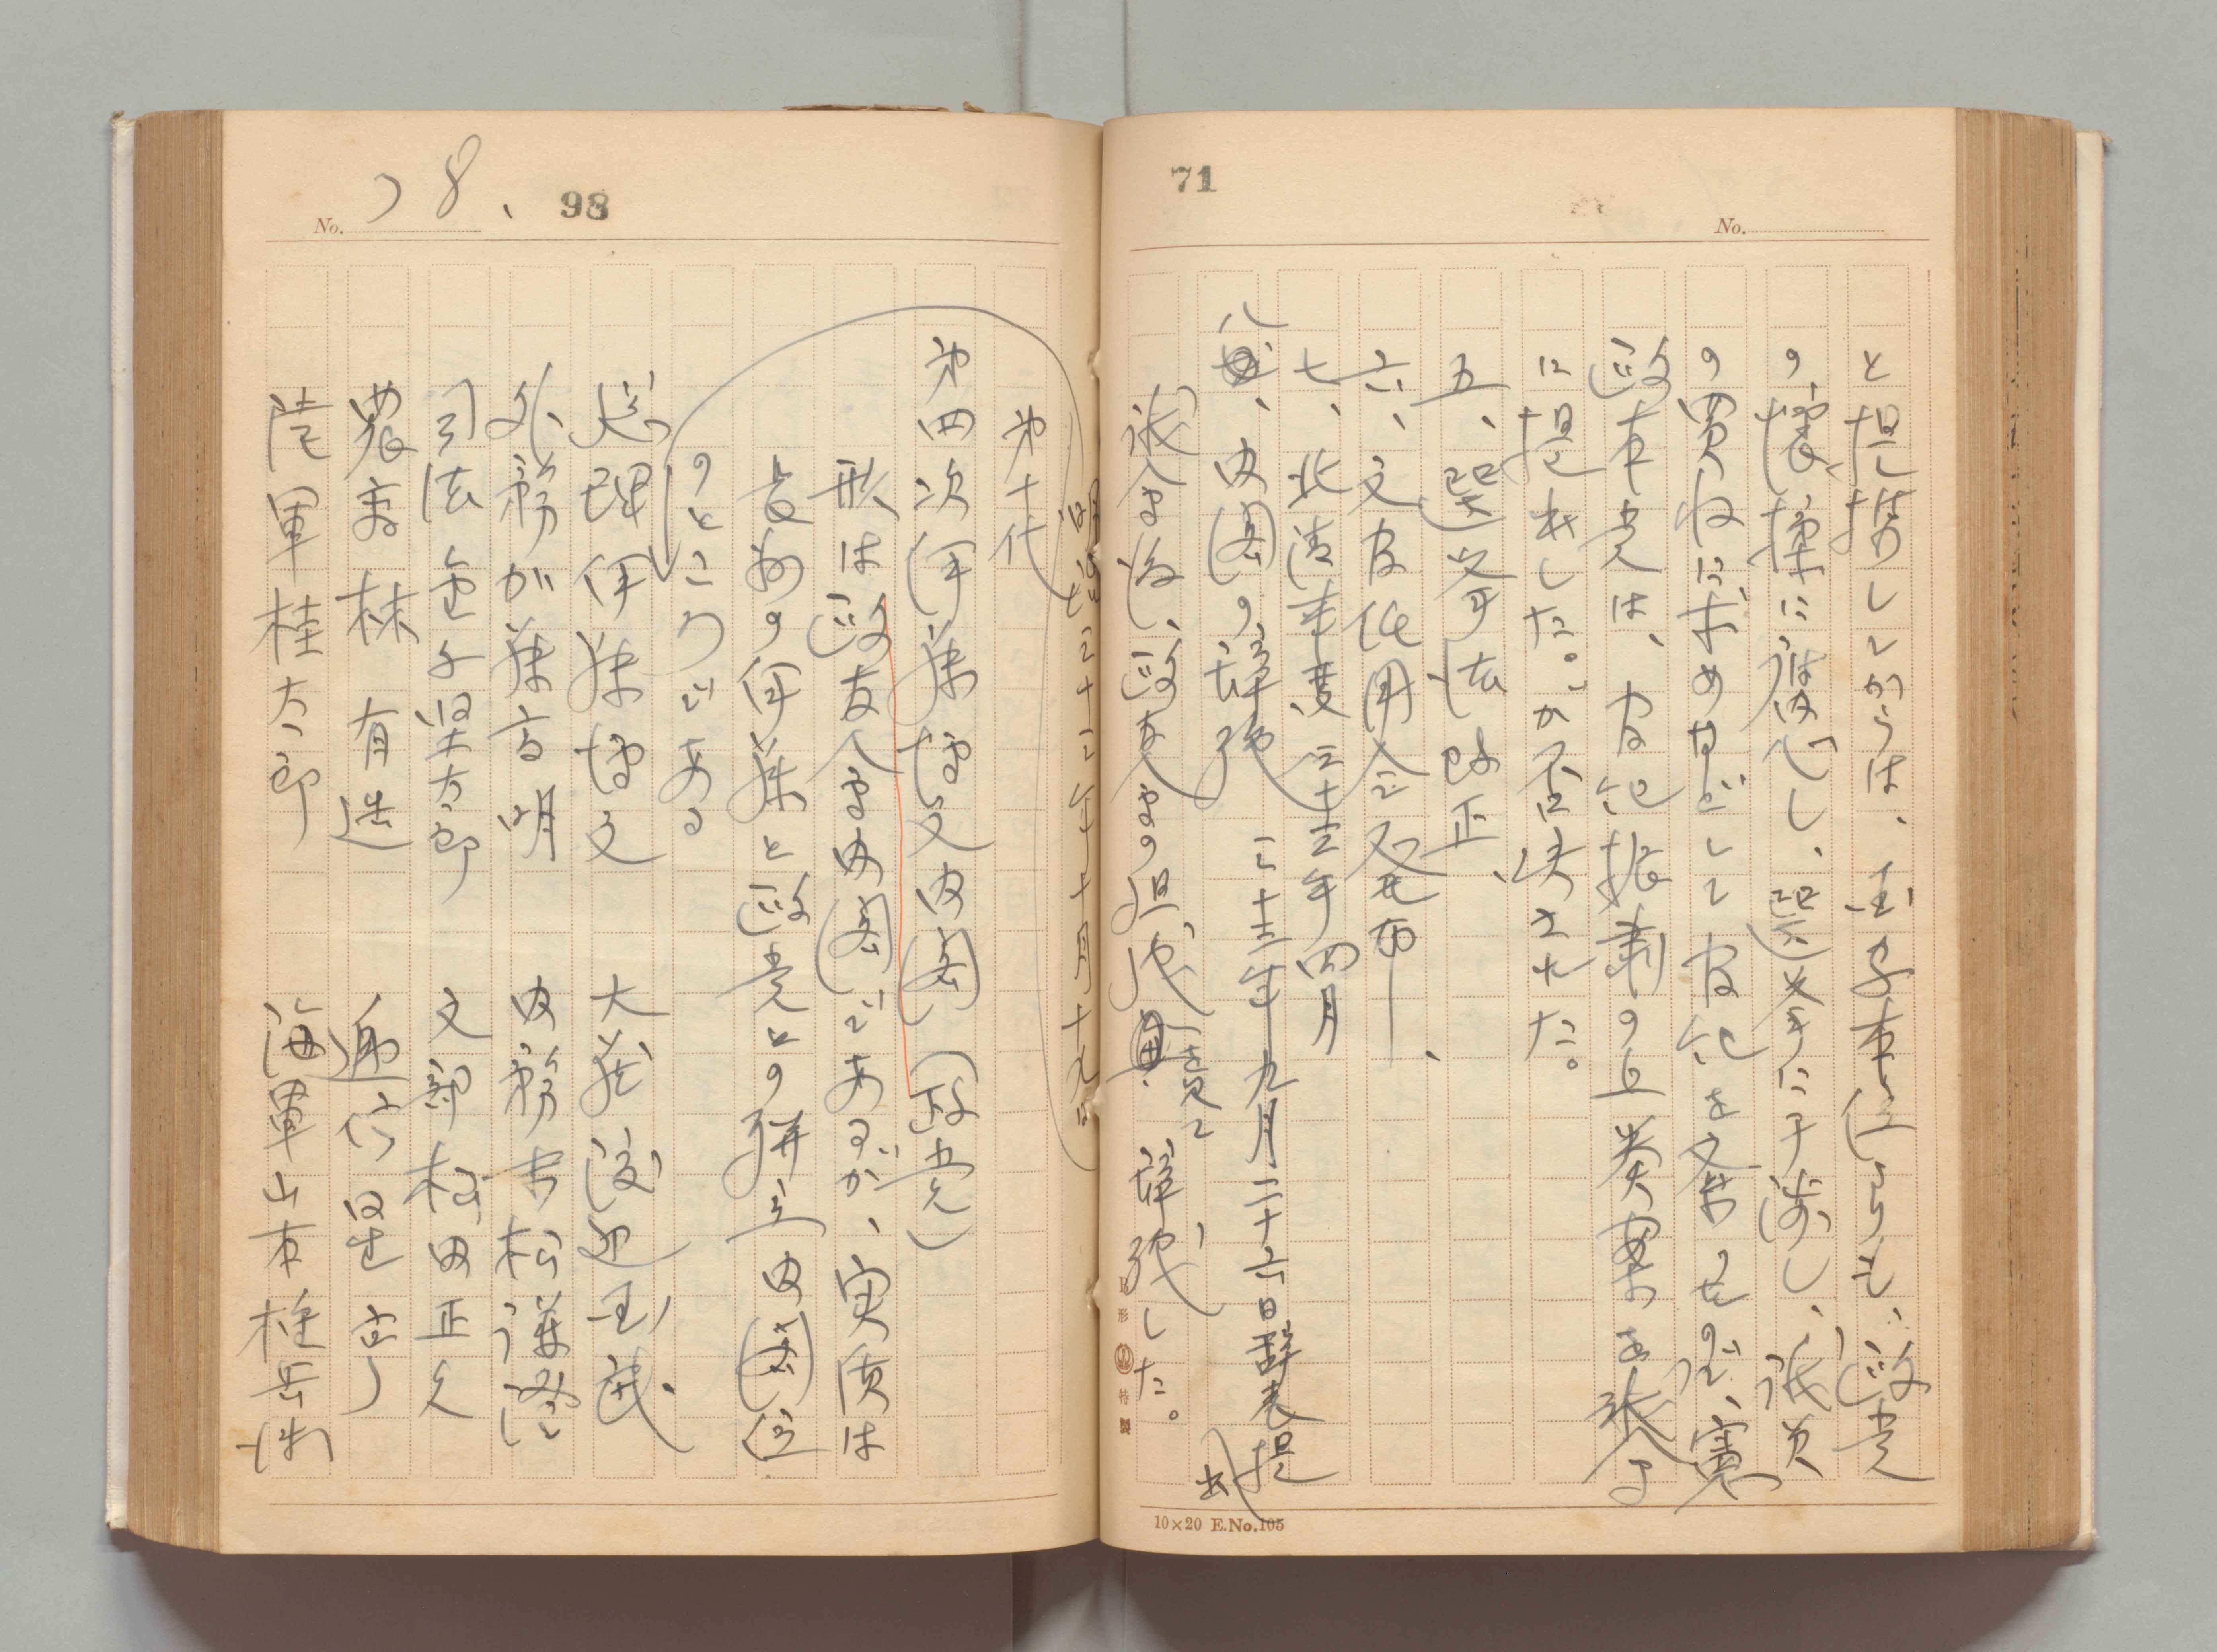 71
No.
と提携してからは、超然主義も、政党
の懐柔に腐心し、選挙に干渉し、議員
の買収に努めなどして官紀を紊したので、憲
政本党は、官紀振粛の上奏案を議会
に提出した。が否決された。
五、選挙法改正、
六、文官任用令発布、
七、北清事変 三十三年四月
八、内閣の辞職 三十三年九月二十六日辞表提出
議会の後、政友会の組織を見て辞職した。
10×20 E.No.105
No. 78、
98
明治三十三年十月十九日
第十代
第四次伊藤博文内閣(政党)
形は政友会内閣であるが、実質は
長州の伊藤と政党との併立内閣位
のところである
総理伊藤博文 大蔵渡辺国武、
外務加藤高明 内務末松謙澄
司法金子堅太郎 文部松田正久
農商林有造 逓信星亨
陸軍桂太郎 海軍山本権兵衛